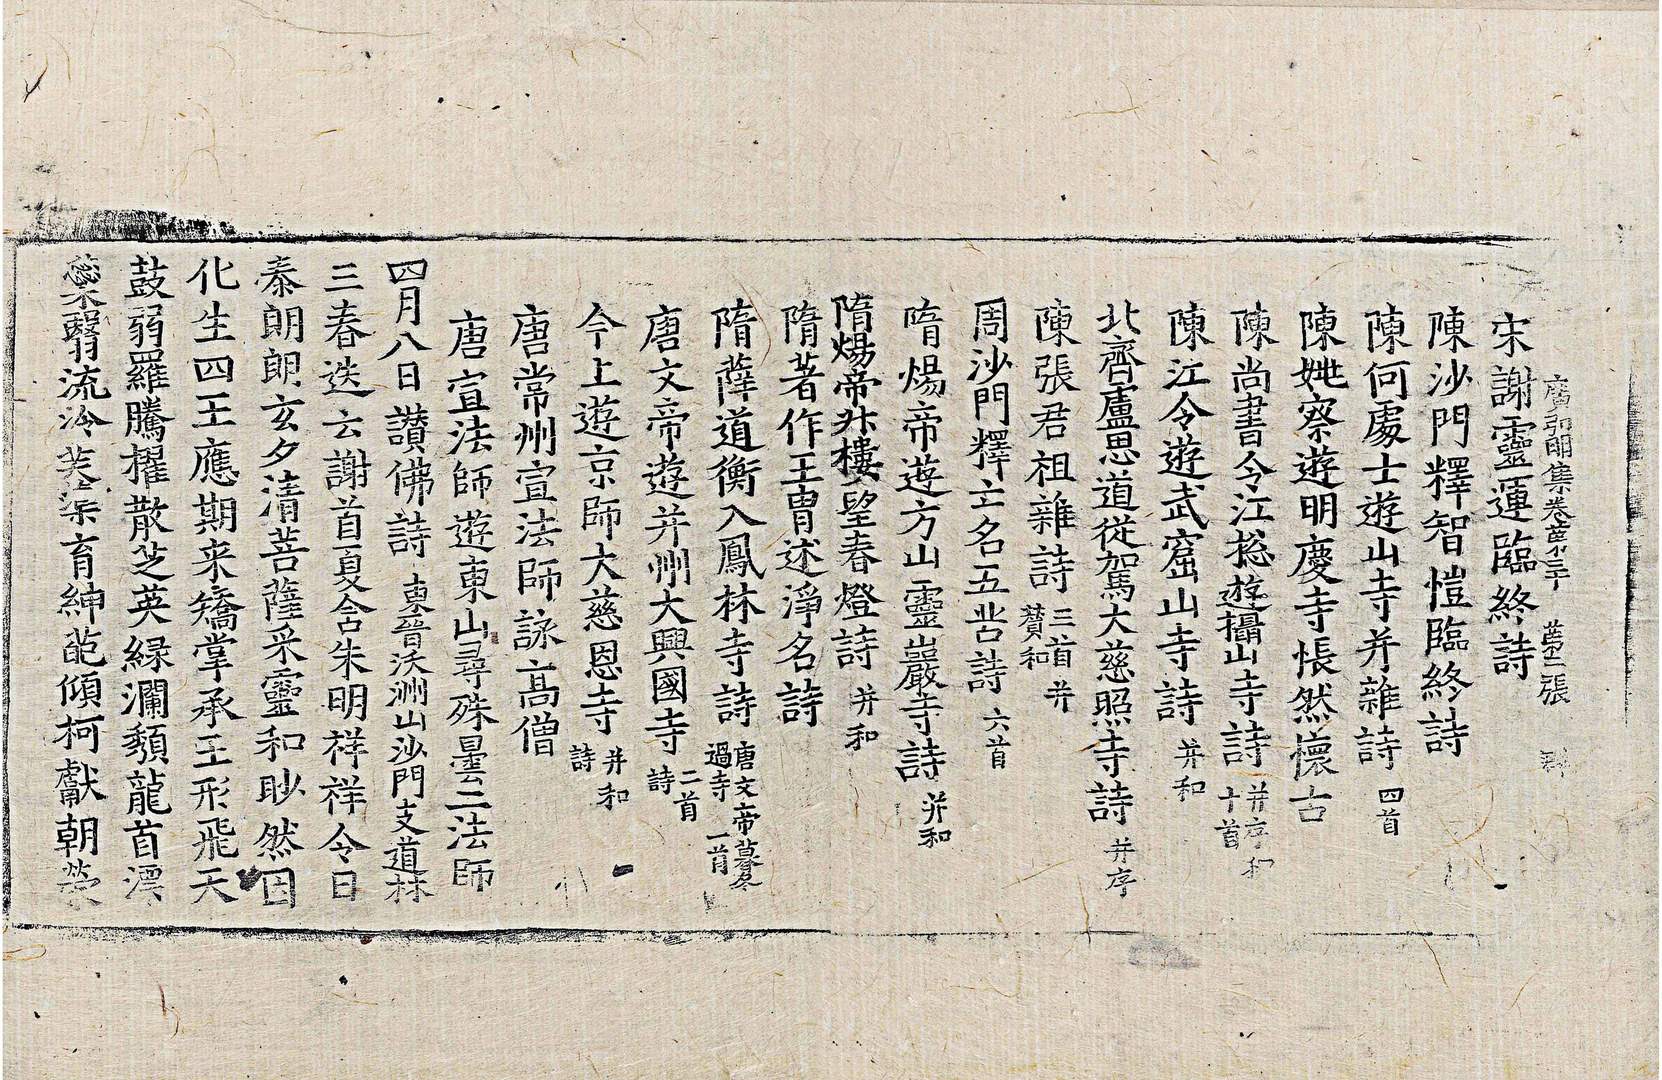 宋謝靈運臨終詩
廣弘明集卷第三十 第二張
陳沙門釋智愷臨終詩
陳何處士遊山寺并雜詩 四首
陳姚察遊明慶寺悵然懷古
陳尚書令江揔遊攝山寺詩 并序和十首
陳江令遊武窟山寺詩 并和
北齊盧思道從駕大慈照寺詩 并序
陳張君祖雜詩 三首并贊和
周沙門釋亡名五苦詩 六首
隋煬帝遊方山靈巖寺詩 并和
隋煬帝升樓望春燈詩 并和
隋著作王胄述淨名詩
隋薛道衡入鳳林寺詩 唐文帝暮冬過寺一首
唐文帝遊并州大興國寺 二首詩
今上遊京師大慈恩寺 并和詩
唐常州宣法師詠高僧
唐宣法師遊東山尋殊曇二法師
四月八日讚佛詩 東晉沃洲山沙門支道林
三春迭云謝首夏含朱明祥祥令日
泰朗朗玄夕清菩薩采靈和眇然因
化生四王應期来矯掌承玉形飛天
鼓弱羅騰擢散芝英緑瀾頽龍首漂
蘂翳流泠芙渠育紳葩傾柯獻朝榮